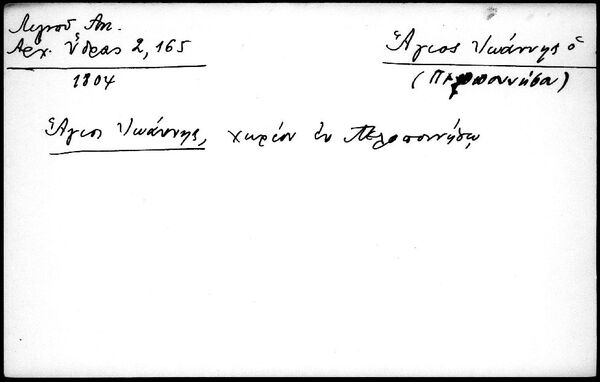 Λιγνοῦ Ἀπ.
Ἀρχ. Ὕδρας 2, 165
1804
Ἅγιος Ἰωάννης ὁ
(Πελοποννήσου)
Ἅγιος Ἰωάννης, χωρίον ἐν Πελοποννήσῳ